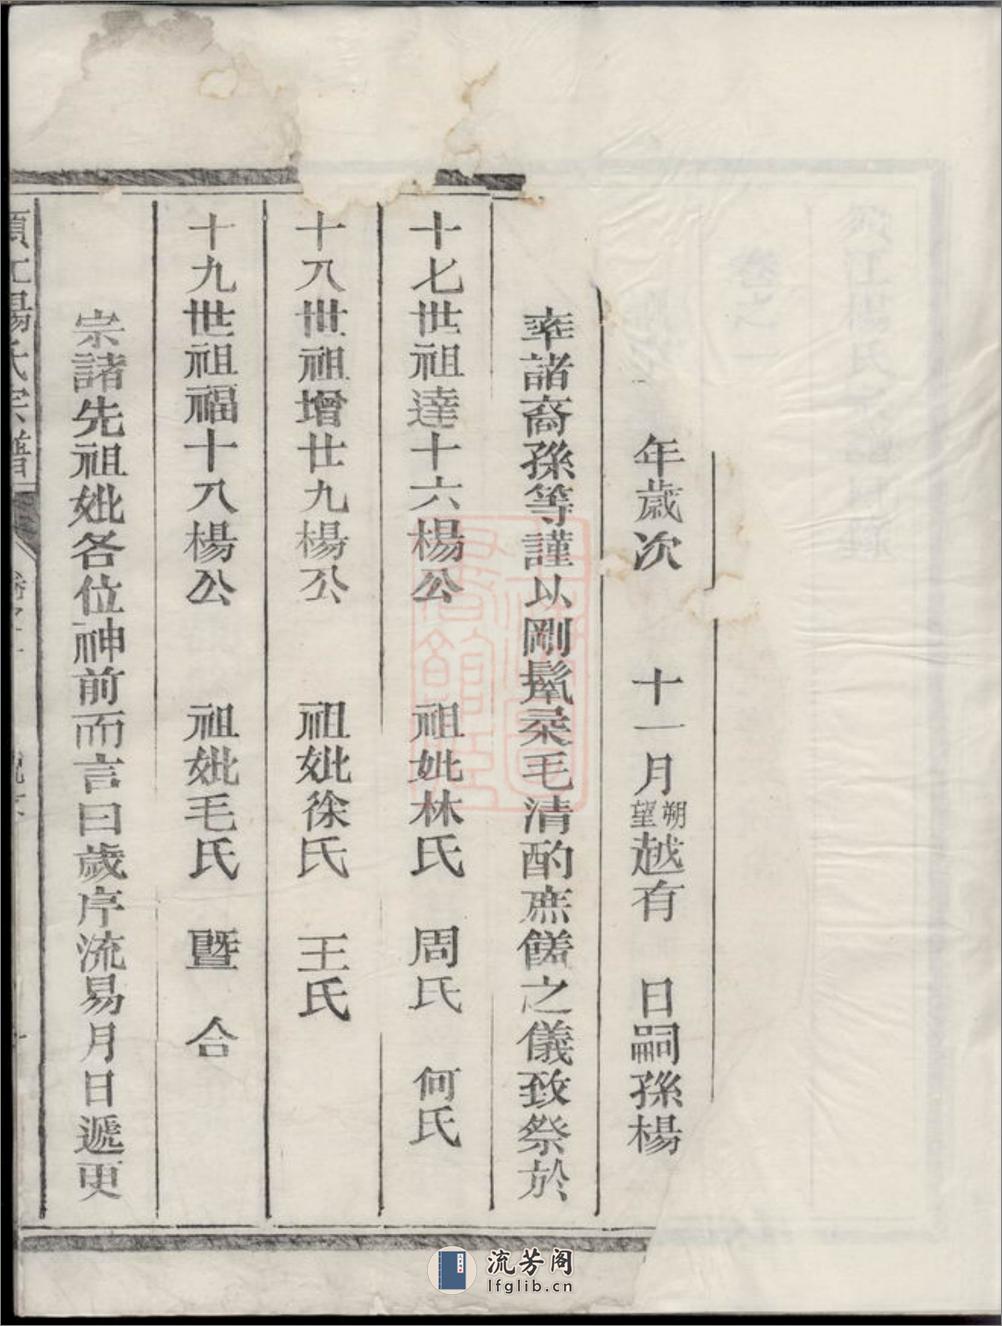 年歲次　十一月朔望越有　日嗣孫楊
率諸裔孫等謹以剛鬣柔毛清酌庶饈之儀致祭於
十七世祖達十六楊公　祖妣林氏　周氏　何氏
十八世祖增廿九楊公　祖妣徐氏　王氏
十九世祖福十八楊公　祖妣毛氏　暨　合
宗諸先祖妣各位神前而言曰歲序流易月日遞更
江楊氏宗譜
流芳阁
lfglib.cn